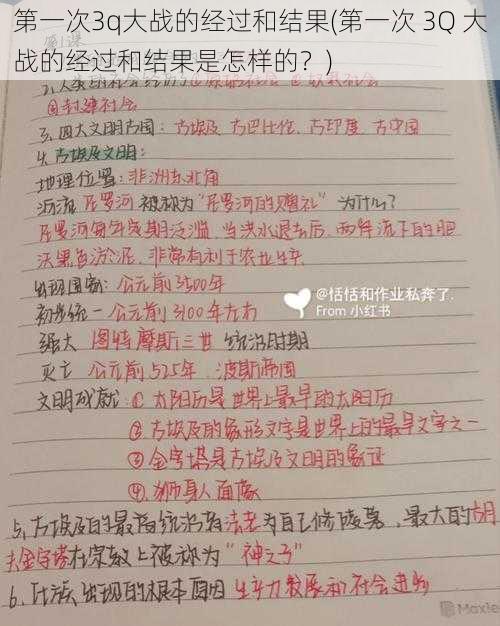 第一次3q大战的经过和结果(第一次 3Q 大
战的经过和结果是怎样的？)
③封建社会
3、四大文明古国：古埃及 古巴比伦、古印度、古中国
4、古埃及文明：
地理位置：非洲东北角
河流 尼罗河 被称为“尼罗河的赠礼” 为什么？
尼罗河每年定期泛滥、当洪水退去后、两岸流下的肥
沃黑色淤泥、非常有利于农业生产
出现国家：公元前3500年
初步统一 公元前3100年左右
强大 图特摩斯三世 统治时期
灭亡 公元前525年、波斯帝国
文明成就：① 太阳历是世界上最早的太阳历
② 古埃及的象形文字是世界上的最早文字之一
③ 金字塔是古埃及文明的象征
④、狮身人面像
5、古埃及的最高统治者法老为自己修陵墓、最大的胡
夫金字塔在宗教上被称为“神之子”
6、氏族出现的根本原因 生产力发展和社会进步
@恬恬和作业私奔了.
From 小红书